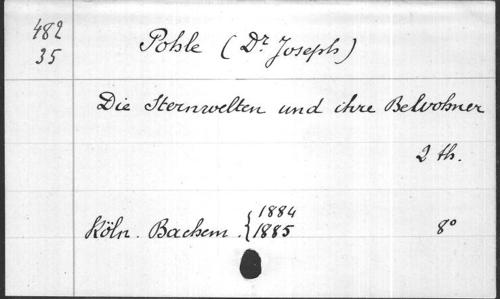 482
35
Pohle (Dr. Joseph)
Die Sternwelten und ihre Bewohner
2 th.
Köln. Bachem. { 1884
1885
8°